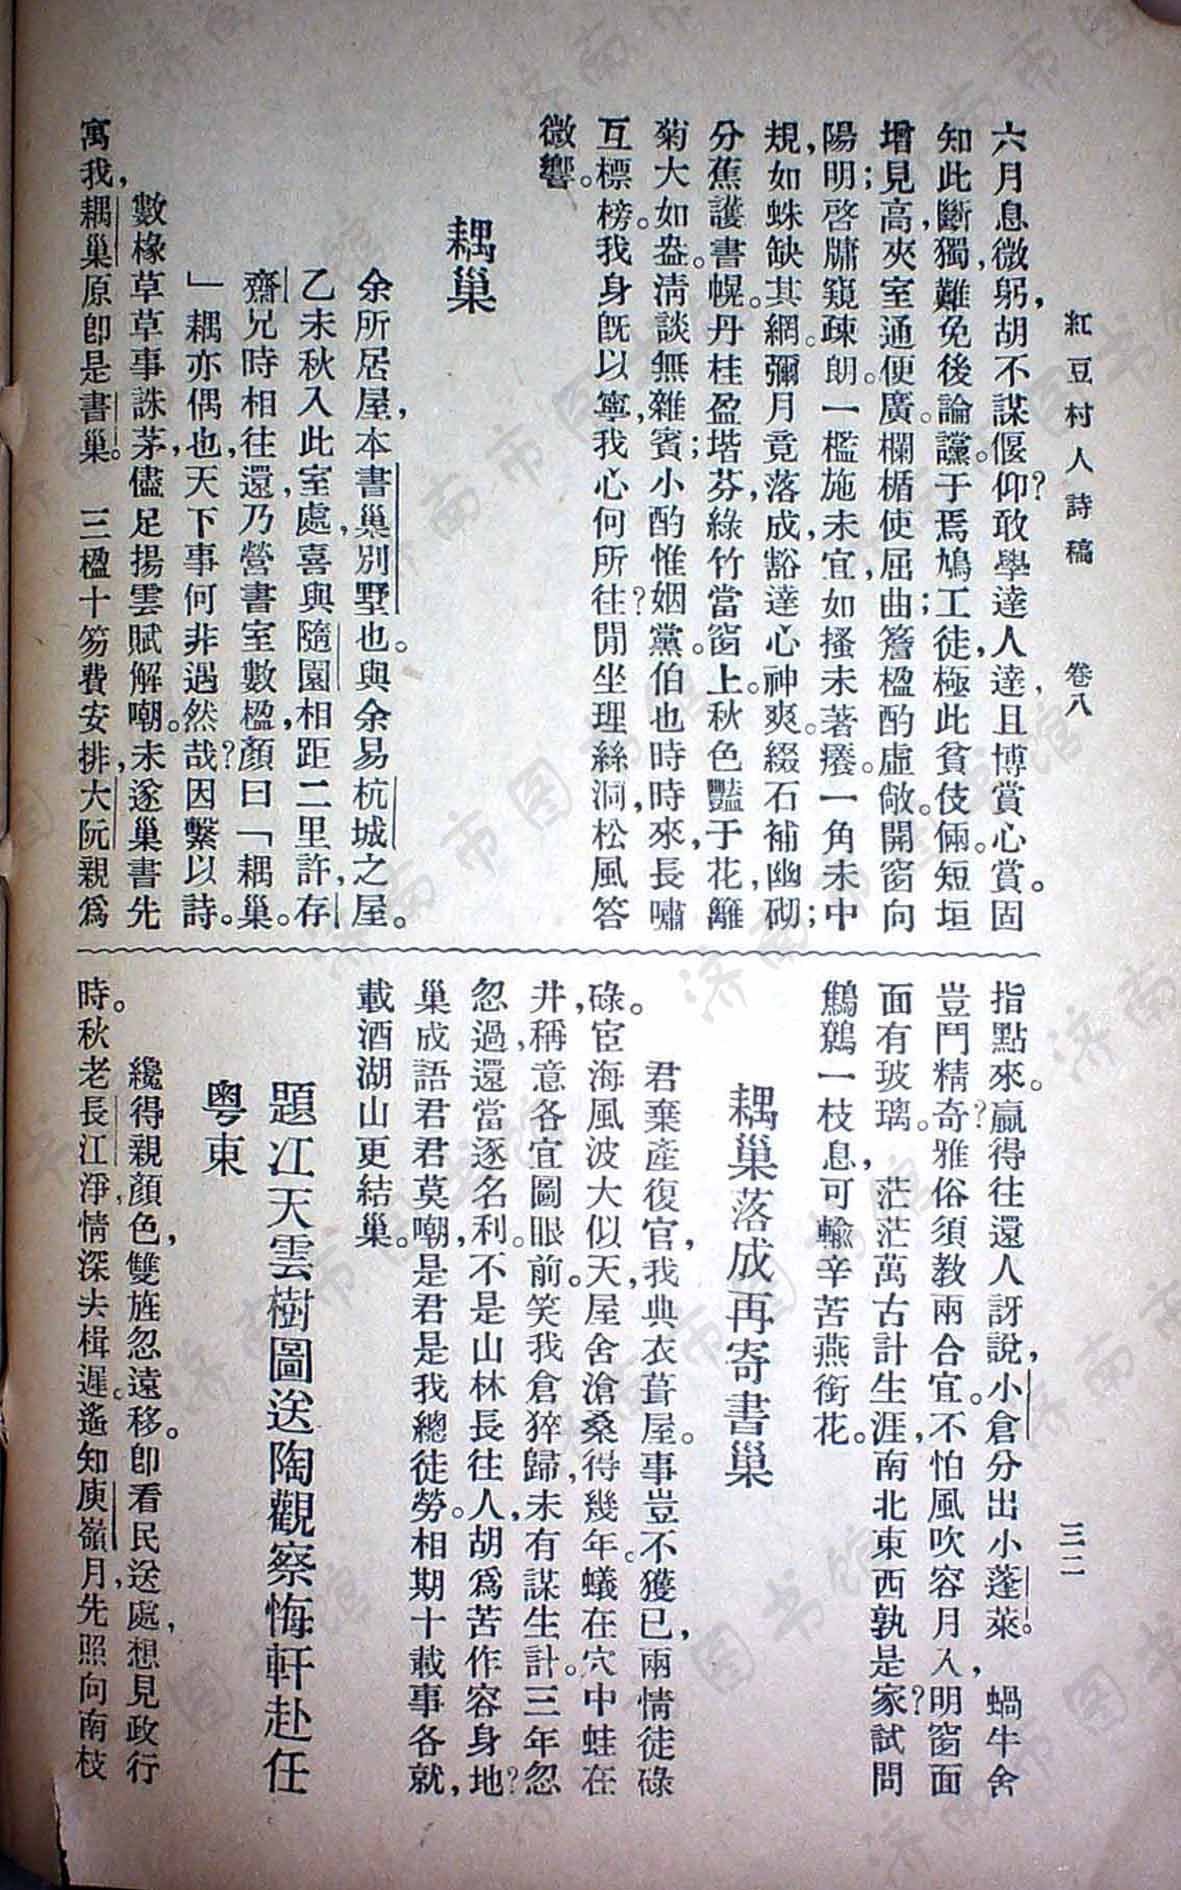 紅豆村人詩稿　卷八　三二
六月息微躬，胡不謀偃仰？敢學達人達，且博賞心賞。固
知此斷獨，難免後論讜。于焉鳩工徒；極此貧伎倆。短垣
增見高，夾室通便廣。欄楯使屈曲，簷楹酌虛敞。開窗向
陽明；啓牖窺疎朗。一檻施未宜，如搔未著癢。一角未中
規，如蛛缺其網。彌月竟落成，豁達心神爽。綴石補幽砌；
分蕉護書幌。丹桂盈堦芬，綠竹當窗上。秋色豔于花，籬
菊大如盎。淸談無雜賓；小酌惟姻黨。伯也時時來，長嘯
互標榜。我身旣以寧，我心何所往？閒坐理絲洞，松風答
微響。
耦巢
余所居屋，本書巢別墅也。與余易杭城之屋。
乙未秋入此室處，喜與隨園相距二里許，存
齋兄時相往還，乃營書室數楹，顏曰「耦巢。
」耦亦偶也，天下事何非遇然哉？因繫以詩。
數椽草草事誅茅，儘足揚雲賦解嘲。未遂巢書先
寓我，耦巢原卽是書巢。　三楹十笏費安排，大阮親爲
指點來。贏得往還人訝說，小倉分出小蓬萊。　蝸牛舍
豈鬥精奇？雅俗須教兩合宜。不怕風吹容月入，明窗面
面有玻璃。　茫茫萬古計生涯，南北東西孰是家？試問
鷦鷯一枝息，可輸辛苦燕銜花。
耦巢落成再寄書巢
君棄產復官，我典衣葺屋。事豈不獲已，兩情徒碌
碌。宦海風波大似天，屋舍滄桑得幾年。蟻在穴中蛙在
井，稱意各宜圖眼前。笑我倉猝歸，未有謀生計。三年忽
忽過，還當逐名利。不是山林長往人，胡爲苦作容身地？
巢成語君君莫嘲，是君是我總徒勞。相期十載事各就，
載酒湖山更結巢。
題江天雲樹圖送陶觀察悔軒赴任
粵東
纔得親顏色，雙旌忽遠移。卽看民送處，想見政行
時。秋老長江淨，情深去楫遲。遙知庾嶺月，先照向南枝